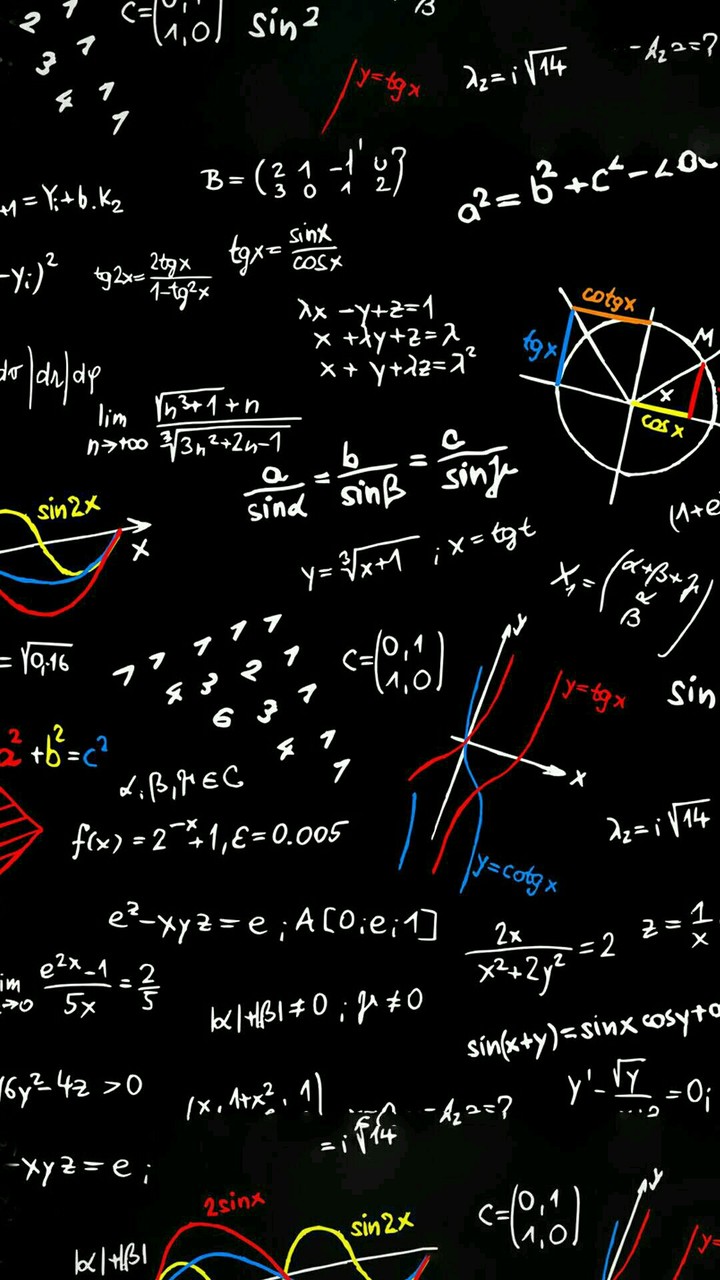 2 1
C=(0,1
1,0) sin2
β
3 1
4 1
1
y=tgx
λ₂=i√14
-A₂=?
B=(2 1 -1
3 0 1 2)
a²=b²+c²-2
+1=Yi+b.K₂
-Yi)²
tg2x=2tgx/1-tg²x
tgx=sinx/cosx
λx-y+z=1
x+λy+z=λ
x+y+λz=λ²
cotgx
tgx
M
x
cosx
|dr|dφ
lim n→+∞ √n³+1+n/∛3n²+2n-1
a/sinα=b/sinβ=c/sinγ
sin2x
x
(1+e
y=∛x+1 ; x=tgt
X₁=(α+β+γ
α
β)
=√0,16
1 1 1 1 1
4 3 2 1
6 3 1
4 1
1
C=(0,1
1,0)
y
y=tgx
x
sin
a²+b²=c²
α,β,γ∈C
f(x)=2⁻ˣ+1,ε=0.005
λ₂=i√14
y=cotgx
e^z-xyz=e ; A[0;e;1]
2x/x²+2y²=2
z=1/x
e^2x-1/5x=2/5
|α|+|β|≠0 ; γ≠0
sin(x+y)=sinx cosy+
6y²-4z>0
(x,1+x²,1)
-A₂=?
y'-√y
=0;
=i√14
-xyz=e ;
2sinx
sin2x
C=(0,1
1,0)
y
y=
|α|+|β|